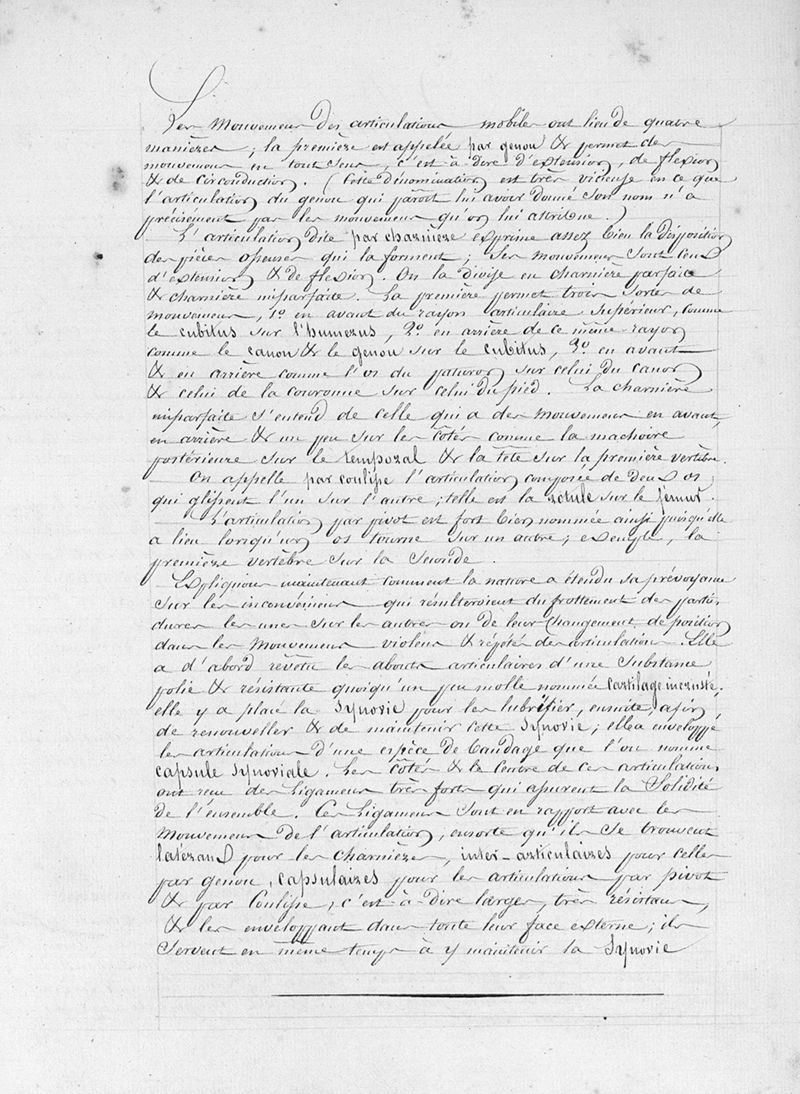 Les Mouvemens des articulations mobiles ont lieu de quatre
manières ; la première est appelée par genou & permet des
mouvemens en tout sens, c'est-à-dire d'extension, de flexion
& de circonduction. (Cette dénomination est très vicieuse en ce que
l'articulation du genou qui paroit lui avoir donné son nom n'a
précisément pas les mouvemens qu'on lui attribue.)
L'articulation dite par charnière exprime assez bien la disposition
des pièces osseuses qui la forment ; Ses mouvemens sont ceux
d'extension & de flexion. On la divise en charnière parfaite
& charnière imparfaite. La première permet trois sortes de
mouvemens, 1º en avant du rayon articulaire supérieur, comme
le cubitus sur l'humerus, 2º en arrière de ce même rayon
comme le canon & le genou sur le cubitus, 3º en avant
& en arrière comme l'os du paturon sur celui du canon
& celui de la couronne sur celui du pied. La charnière
imparfaite s'entend de celle qui a des mouvemens en avant,
en arrière & un peu sur les côtés comme la machoire
postérieure sur le temporal & la tête sur la première vertèbre.
On appelle par coulisse l'articulation composée de deux os
qui glissent l'un sur l'autre ; telle est la rotule sur le fémur.
L'articulation par pivot est fort bien nommée ainsi puisqu'elle
a lieu lorsqu'un os tourne sur un autre ; exemple, la
première vertèbre sur la seconde.
Expliquons maintenant comment la nature a étendu sa prévoyance
sur les inconvéniens qui résulteroient du frottement des parties
dures les unes sur les autres ou de leur changement de position
dans les Mouvemens violens & répétés des articulations. Elle
a d'abord revêtu les abouts articulaires d'une substance
polie & résistante quoiqu'un peu molle nommée cartilage incrusté,
elle y a placé la Synovie pour les lubrifier, ensuite, afin
de renouveller & de maintenir cette Synovie ; elle a enveloppé
les articulations d'une espèce de bandage que l'on nomme
capsule synoviale. Les côtés & le centre de ces articulations
ont reçu des Ligamens très forts qui assurent la Solidité
de l'ensemble. Ces Ligamens sont en rapport avec les
Mouvemens de l'articulation, ensorte qu'ils se trouvent
latéraux pour les charnières, inter-articulaires pour celles
par genou, capsulaires pour les articulations par pivot
& par Coulisse, c'est-à-dire larges, très résistans,
& les enveloppant dans toute leur face externe ; ils
servent en même temps à y maintenir la Synovie